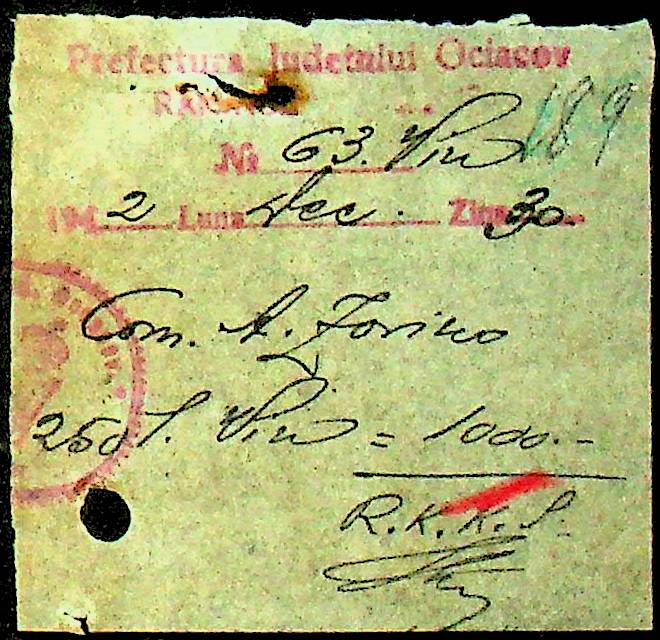 Prefectura Judetului Ociacov
189
№ 63. Vin
1942 Luna Dec. Ziua 30.
Com. A.
250 l. Vin = 1000.-
R.K.K.S.